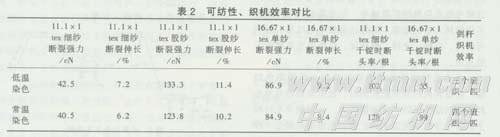 表2 可纺性、织机效率对比
11.1×1 11.1×1 11.1×1 11.1×1 16.67×1 16.67×1 11.1×1 16.67×1 剑杆
tex 细纱 tex 细纱 tex 股纱 tex 股纱 tex 单纱 tex 单纱 tex 细纱 tex 单纱 织机
断裂强力 断裂伸长 断裂强力 断裂伸长 断裂强力 断裂伸长 千锭时断 千锭时断 效率
/cN /% /cN /% /cN /% 头率/根 头率/根
低温
染色 42.5 7.2 133.3 11.4 86.9 9.2 102
常温
染色 40.5 6.2 123.8 10.2 84.9 8.4 128 99
中国纺机网